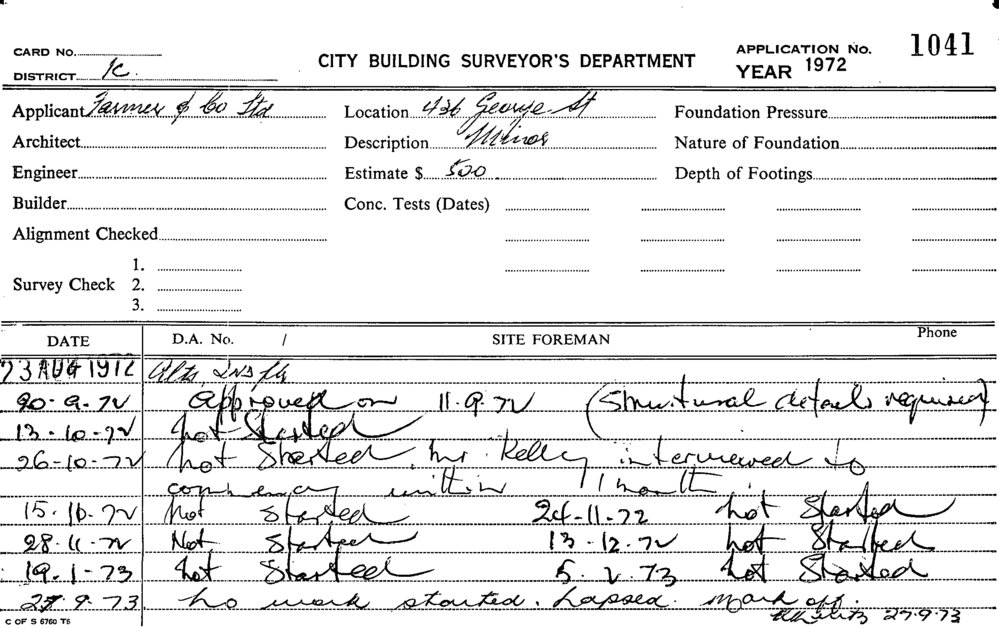 CARD No.
DISTRICT K.
CITY BUILDING SURVEYOR'S DEPARTMENT
APPLICATION No. 1041
YEAR 1972
Applicant Farmer & Co Ltd
Location 436 George St
Foundation Pressure
Architect
Description Minor
Nature of Foundation
Engineer
Estimate $ 500.
Depth of Footings
Builder
Conc. Tests (Dates)
Alignment Checked
Survey Check 1.
2.
3.
DATE D.A. No. / SITE FOREMAN Phone
23 AUG 1972 Alts 2nd flr
20-9-72 Approved on 11.9.72 (Structural details required)
13-10-72 Not Started
26-10-72 Not Started, Mr Kelly interviewed to
within 1 month.
15.10.72 Not Started 24-11-72 Not Started
28.11.72 Not Started 13.12.72 Not Started
19.1.73 Not Started 5.2.73 Not Started
27 9.73 No work started. Lapsed. Mark off.
27.9.73
C OF S 6760 T6